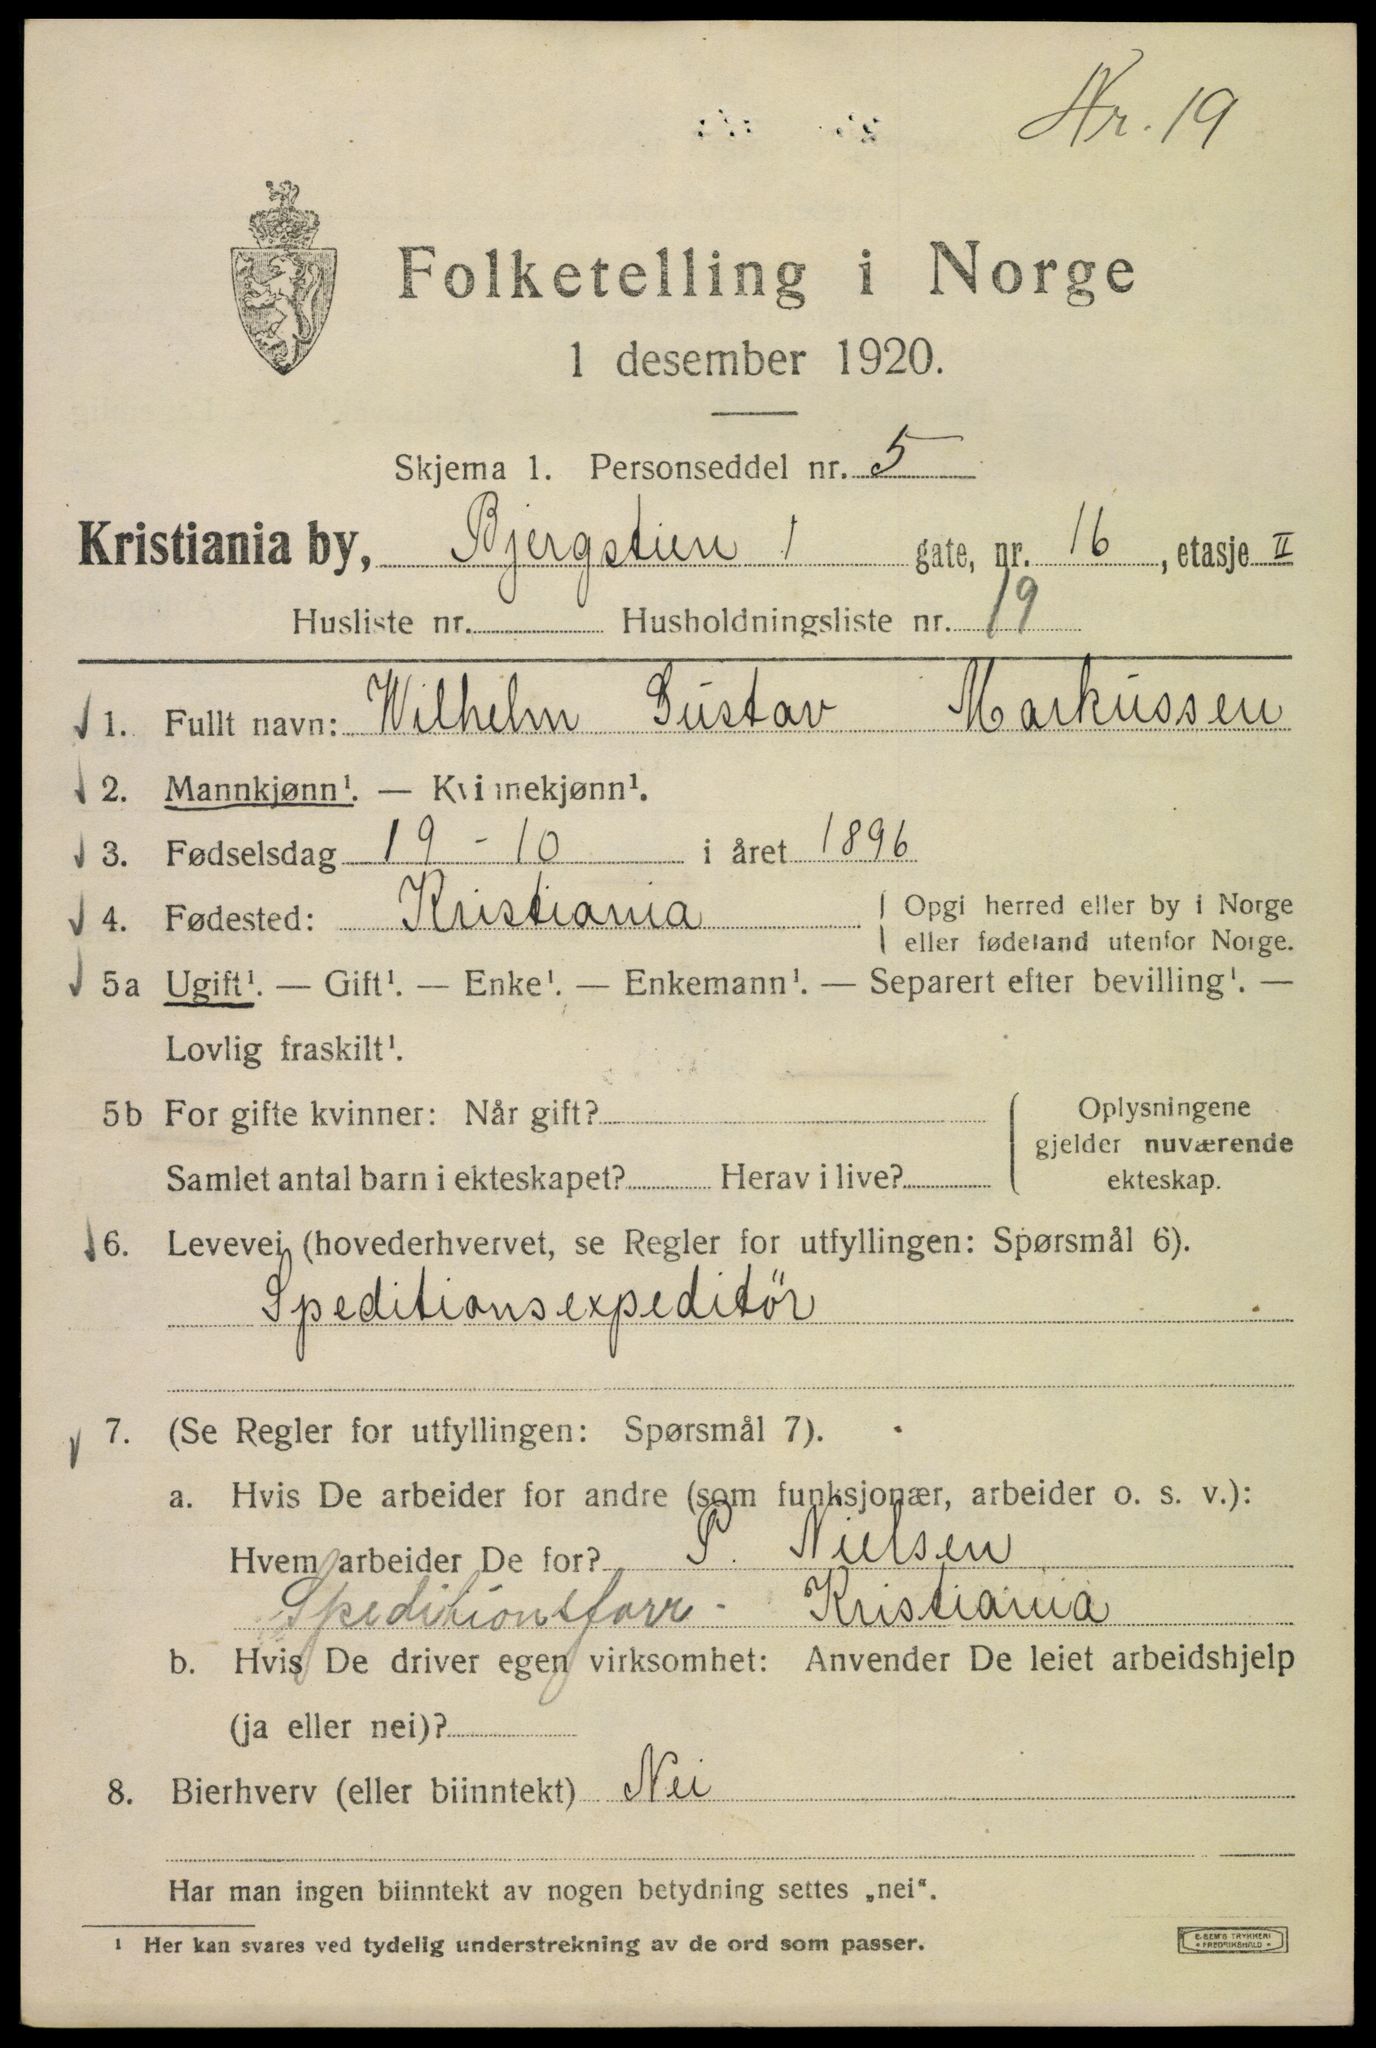 Nr. 19
Folketelling i Norge
1 desember 1920.
Skjema 1. Personseddel nr. 5
Kristiania by, Bjergstien 1 gate, nr. 16, etasje II
Husliste nr. Husholdningsliste nr. 19
1. Fullt navn: Wilhelm Gustav Markussen
2. Mannkjønn¹. — Kvinnekjønn¹.
3. Fødselsdag 19 - 10 i året 1896
4. Fødested: Kristiania Opgi herred eller by i Norge
eller fødeland utenfor Norge.
5a Ugift¹. — Gift¹. — Enke¹. — Enkemann¹. — Separert efter bevilling¹. —
Lovlig fraskilt¹.
5b For gifte kvinner: Når gift? Oplysningene
gjelder nuværende
Samlet antal barn i ekteskapet? Herav i live? ekteskap.
6. Levevei (hovederhvervet, se Regler for utfyllingen: Spørsmål 6).
Speditionsexpeditör
7. (Se Regler for utfyllingen: Spørsmål 7).
a. Hvis De arbeider for andre (som funksjonær, arbeider o. s. v.):
Hvem arbeider De for? P. Nielsen
Speditionsforr. Kristiania
b. Hvis De driver egen virksomhet: Anvender De leiet arbeidshjelp
(ja eller nei)?
8. Bierhverv (eller biinntekt) Nei
Har man ingen biinntekt av nogen betydning settes „nei“.
¹ Her kan svares ved tydelig understrekning av de ord som passer.
E. SEM'S TRYKKERI
FREDRIKSHALD